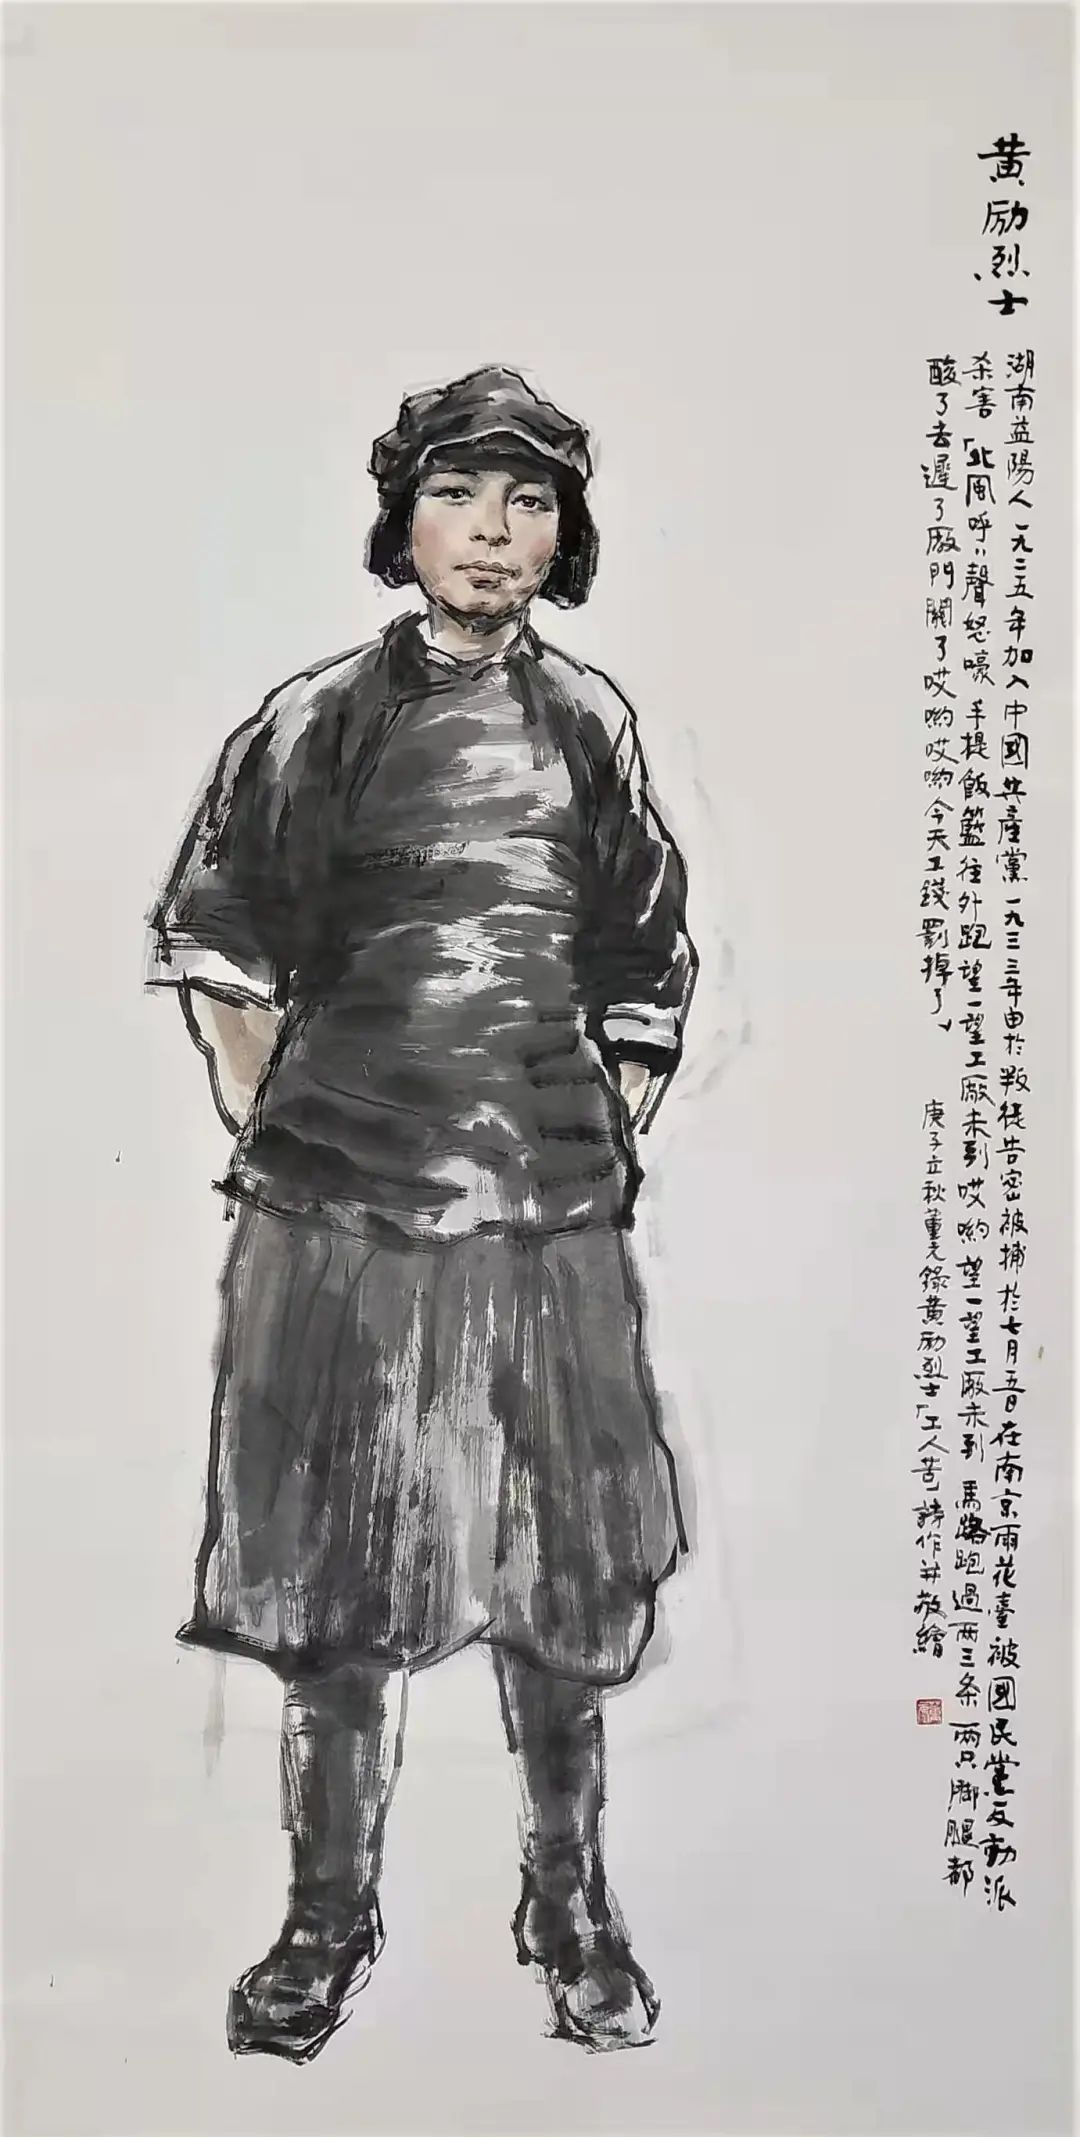 黄励烈士
湖南益陽人一九二五年加入中國共產黨一九三三年由於叛徒告密被捕於七月五日在南京雨花臺被國民黨反動派
杀害「北風呼〻聲怒嚎手提飯籃往外跑望一望工厰未到哎喲望一望工厰未到馬路跑過两三条两只脚腿都
酸了去遲了厰門關了哎喲哎喲今天工錢罰掉了」
庚子立秋董元錄黄励烈士「工人苦」詩作并敬繪